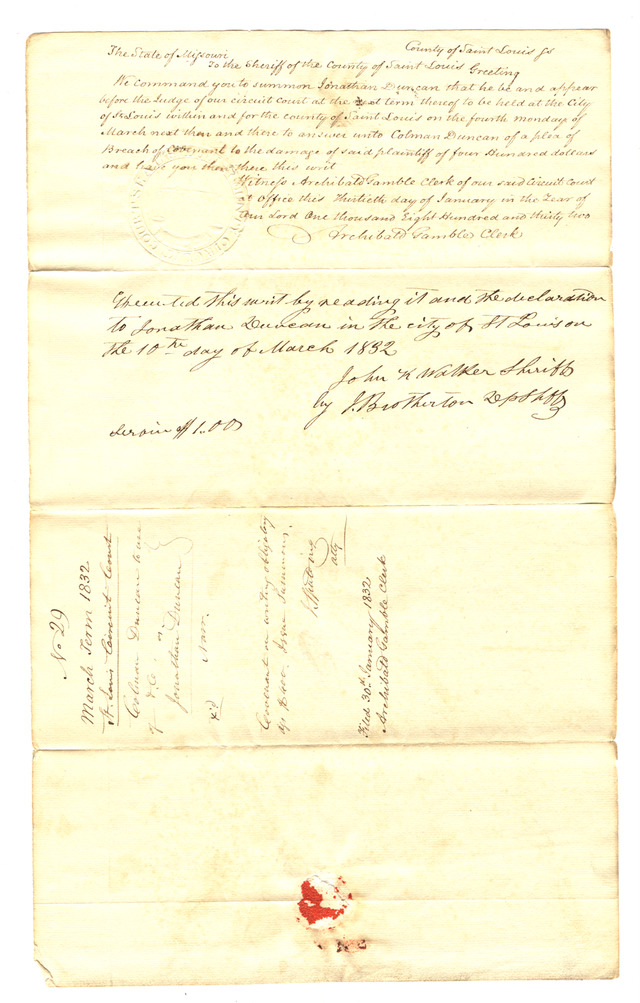 The State of Missouri County of Saint Louis Ss
To the Sheriff of the County of Saint Louis Greeting
We command you to summon Jonathan Duncan that he be and appear
before the Judge of our circuit court at the next term thereof to be held at the City
of St Louis within and for the county of Saint Louis on the fourth monday of
March next then and there to answer unto Colman Duncan of a plea of
Breach of Covenant to the damage of said plaintiff of four Hundred dollars
and have you then there this writ
Witness Archibald Gamble Clerk of our said Circuit Court
at office this thirtieth day of January in the Year of
Our Lord One thousand Eight Hundred and thirty two
Archibald Gamble Clerk
Executed this writ by reading it and the declaration
to Jonathan Duncan in the city of St Louis on
the 10th day of March 1832
John K Walker Sheriff
by J. Brotherton Dp Shff
Servin $1.00
No 29
March Term 1832
St Louis Circuit Court
Colman Duncan to use
of
Jonathan Duncan
Narr.
Covenant on writing obligatory
Issue Summons.
Spalding
atty
Filed 30th January 1832
Archibald Gamble Clerk